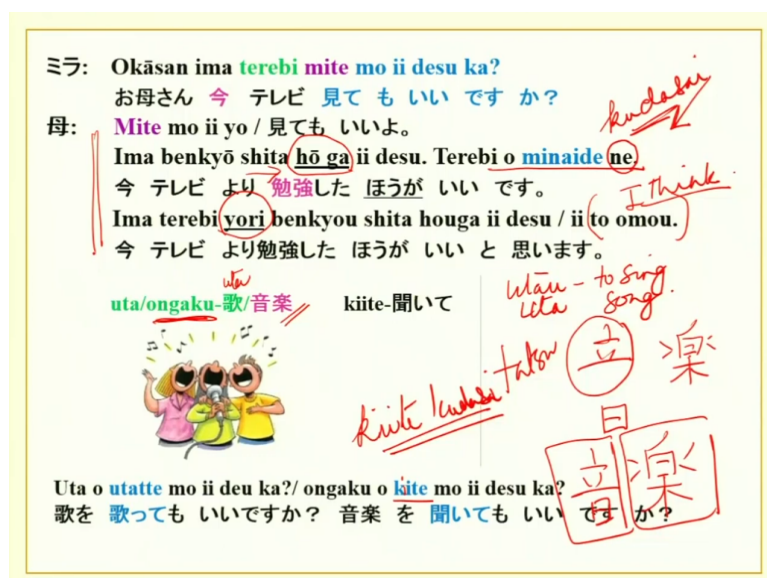 ミラ: Okāsan ima terebi mite mo ii desu ka?
お母さん 今 テレビ 見て も いい です か？
母: Mite mo ii yo / 見ても いいよ。
kudasai
Ima benkyō shita hō ga ii desu. Terebi o minaide ne.
今 テレビ より 勉強した ほうが いい です。
I think.
Ima terebi yori benkyou shita houga ii desu / ii to omou.
今 テレビ より勉強した ほうが いい と 思います。
uta
uta/ongaku-歌/音楽 kiite-聞いて
utāu - to sing
uta song.
kiite kudasi tatsu
立 楽
日
音 楽
Uta o utatte mo ii deu ka?/ ongaku o kite mo ii desu ka?
i
歌を 歌っても いいですか？ 音楽 を 聞いても いい です か？